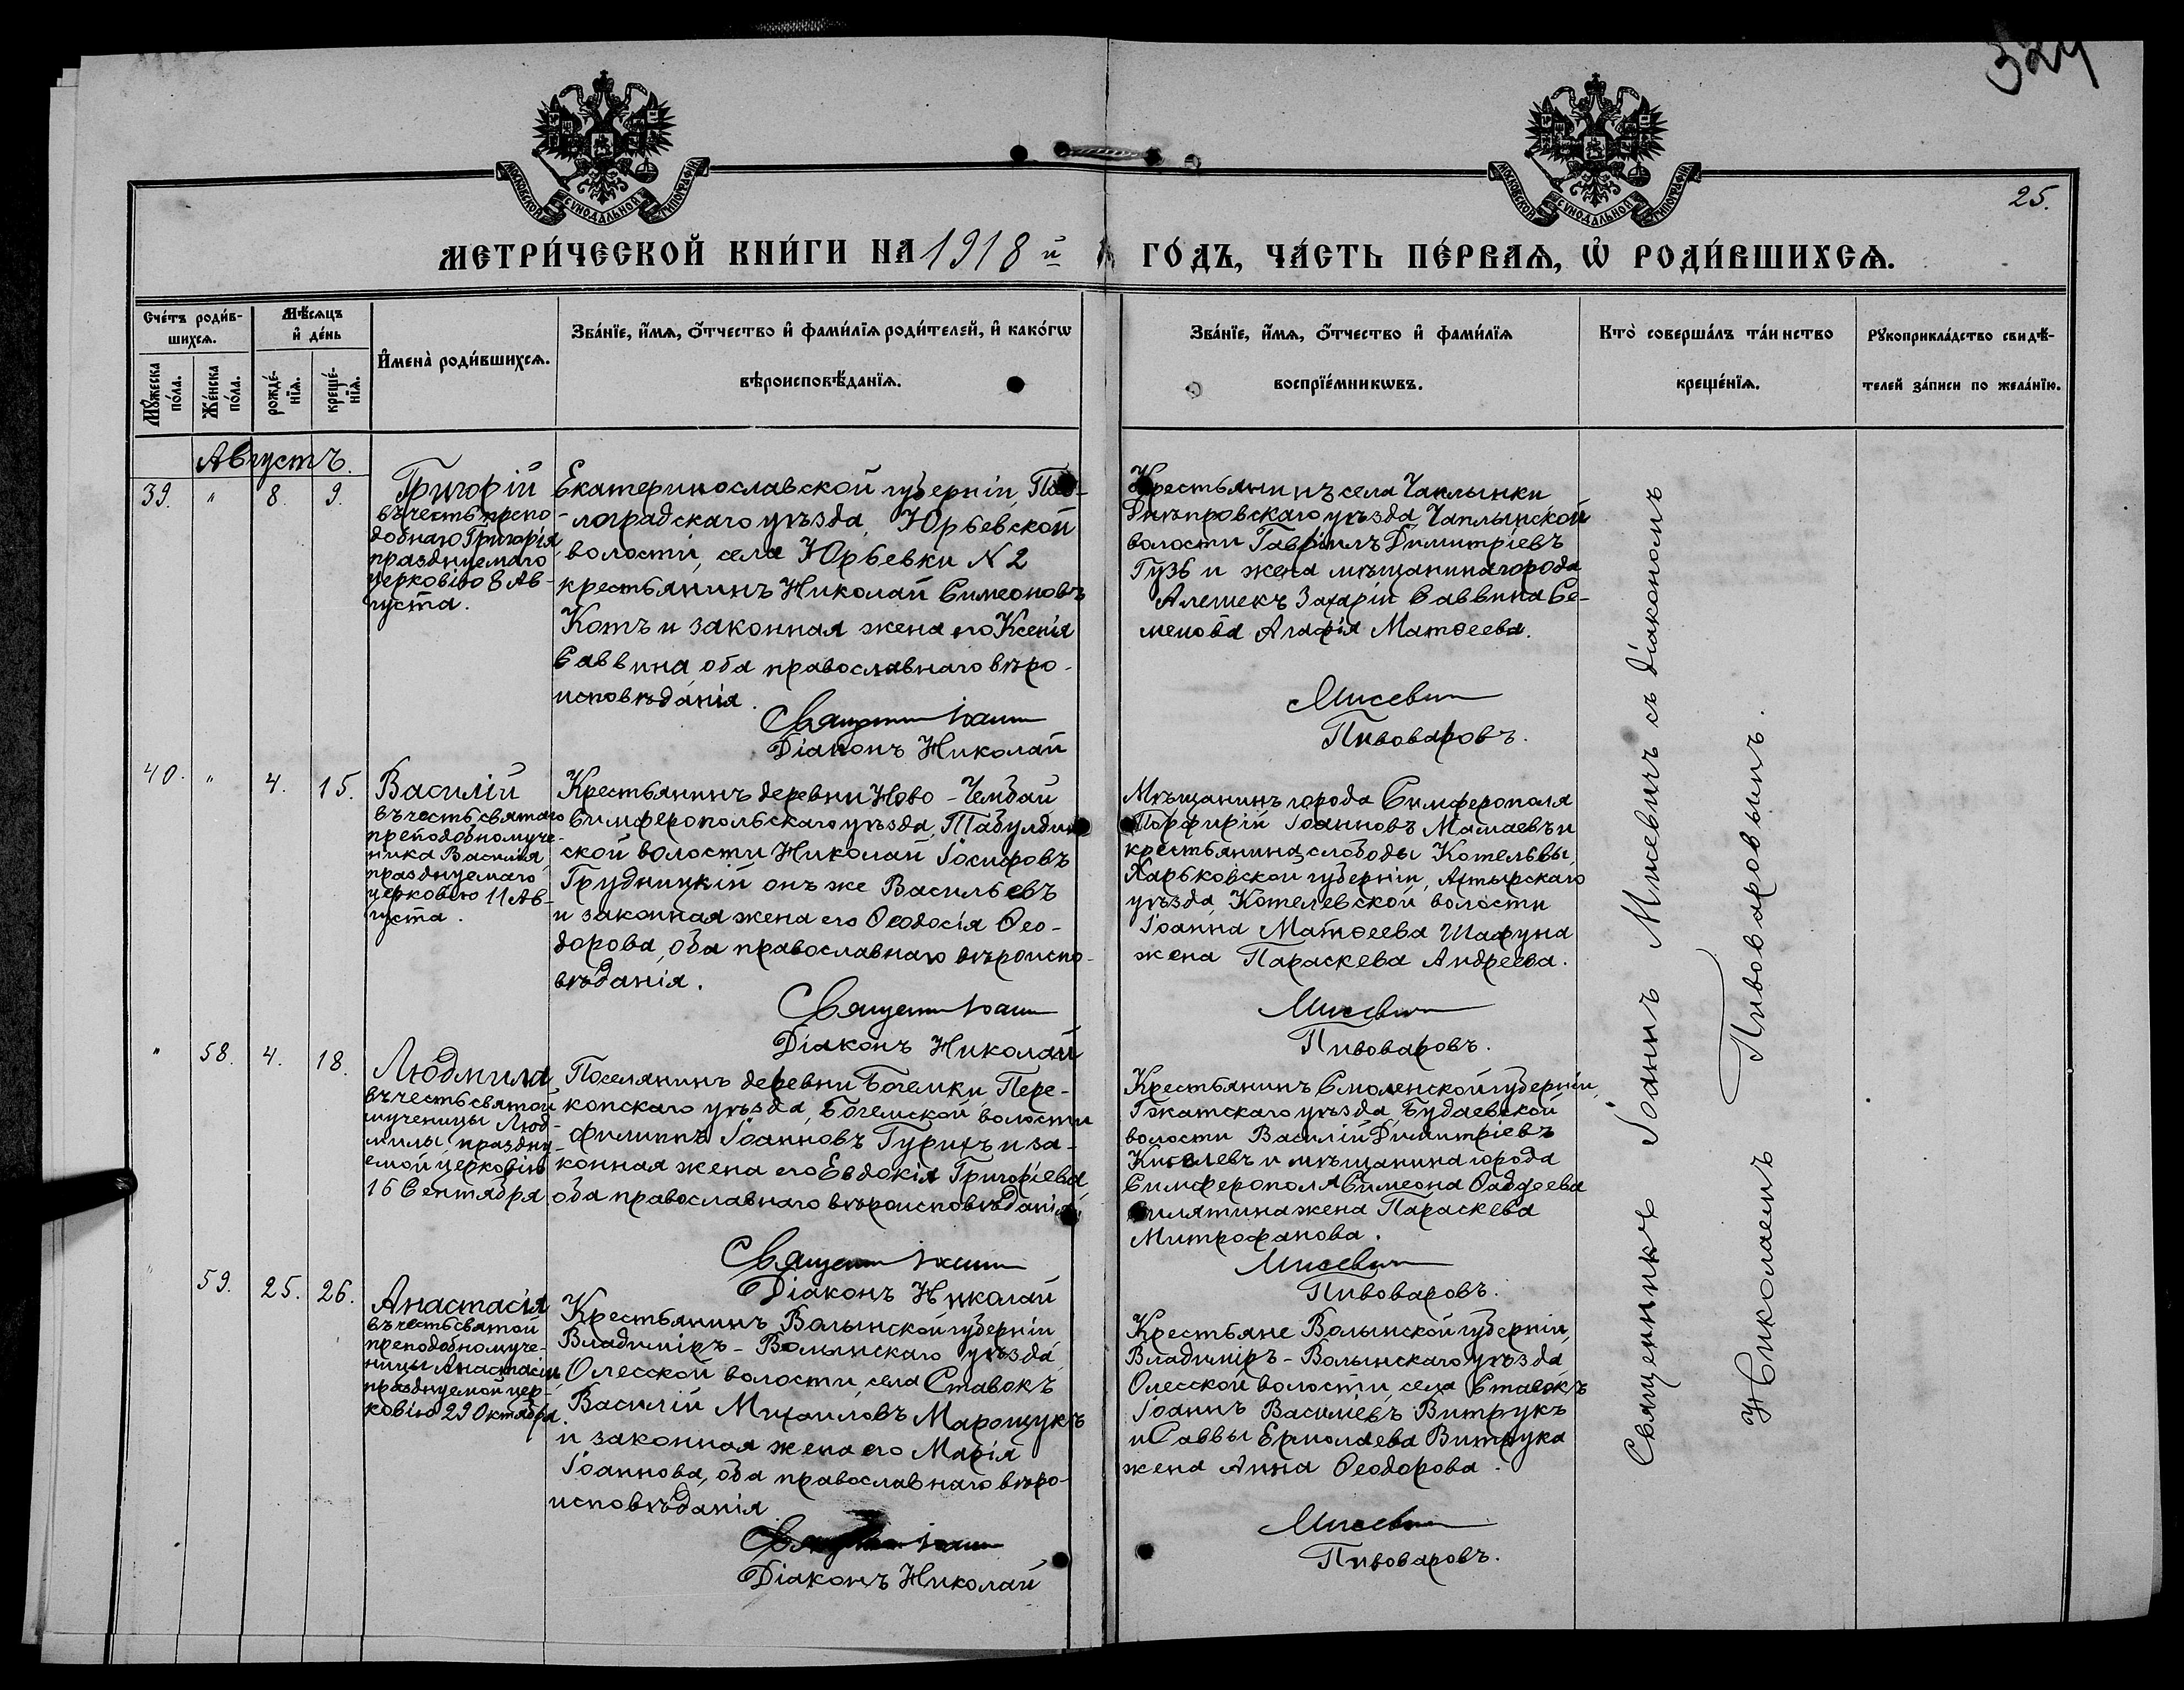 324
МОСКОВСКОЙ СѴНОДАЛЬНОЙ ТИПОГРАФІИ
МОСКОВСКОЙ СѴНОДАЛЬНОЙ ТИПОГРАФІИ
25.
МЕТРИ́ЧЕСКОЙ КНИ́ГИ НА 1918 й ГО́ДЪ, ЧА́СТЬ ПЕ́РВАѦ, Ѡ҆ РОДИ́ВШИХСѦ.
Сче́тъ роди́в-
шихсѧ.
Мѣ́сѧцъ
и҆ де́нь
Мꙋ́жеска
по́ла.
Же́нска
по́ла.
рожде́-
нїѧ.
креще́-
нїѧ.
И҆мена̀ роди́вшихсѧ.
Зва́нїе, и҆́мѧ, ѻ҆́тчество и҆ фами́лїѧ роди́телей, и҆ како́гѡ
вѣроисповѣ́данїѧ.
Зва́нїе, и҆́мѧ, ѻ҆́тчество и҆ фами́лїѧ
воспрїе́мникѡвъ.
Кто̀ соверша́лъ та́инство
креще́нїѧ.
Рꙋкоприкла́дство свидѣ́-
телей за́писи по жела́нїю.
Августъ.
39. " 8. 9.
Григорій
въ честь препо
добнаго Григорія
празднуемаго
церковію 8 Ав-
густа.
Екатеринославской губерніи, Пав-
-лоградскаго уѣзда, Юрьевской
волости, села Юрьевки N 2
крестьянинъ Николай Симеоновъ
Котъ и законная жена его Ксенія
Саввина, оба православнаго вѣро-
исповѣданія.
Священникъ Іоаннъ
Діаконъ Николай
Крестьянинъ села Чаплынки
Днѣпровскаго уѣзда, Чаплынской
волости Гавріилъ Димитріевъ
Гузь и жена мѣщанина города
Алешекъ Захаріи Саввина Се-
менова Агафія Матѳеева.
Мисевичъ
Пивоваровъ.
40. " 4. 15.
Василій
въ честь святаго
преподобномуче-
ника Василія
празднуемаго
церковію 11 Ав-
густа.
Крестьянинъ деревни Ново-Чембай
Симферопольскаго уѣзда, Табулдин
ской волости Николай Іосифовъ
Грудницкій онъ же Васильевъ
и законная жена его Ѳеодосія Ѳео-
дорова, оба православнаго вѣроиспо-
вѣданія.
Священникъ Іоаннъ
Діаконъ Николай
Мѣщанинъ города Симферополя
Порфирій Іоанновъ Мамаевъ и
крестьянина слободы Котельвы,
Харьковской губерніи, Ахтырскаго
уѣзда, Котелевской волости
Іоанна Матѳеева Шафуна
жена Параскева Андреева.
Мисевичъ
Пивоваровъ.
" 58. 4. 18.
Людмила
въ честь святой
мученицы Люд-
милы праздну-
емой церковію
16 Сентября
Поселянинъ деревни Богемки, Пере-
копскаго уѣзда, Богемской волости
Филиппъ Іоанновъ Турихъ и за-
конная жена его Евдокія Григоріева
оба православнаго вѣроисповѣданія.
Священникъ Іоаннъ
Діаконъ Николай
Крестьянинъ Смоленской губерніи,
Гжатскаго уѣзда, Будаевской
волости Василій Димитріевъ
Киселевъ и мѣщанина города
Симферополя Симеона Ѳаддеева
жена Параскева
Митрофанова.
Мисевичъ
Пивоваровъ.
" 59. 25. 26.
Анастасія
въ честь святой
преподобномуче-
ницы Анастасіи
празднуемой цер-
ковію 29 Октября.
Крестьянинъ Волынской губерніи
Владиміръ-Волынскаго уѣзда,
Олесской волости, села Ставокъ
Василій Михаиловъ Марощукъ
и законная жена его Марія
Іоаннова, оба православнаго вѣро-
исповѣданія
Священникъ Іоаннъ
Діаконъ Николай
Крестьяне Волынской губерніи,
Владиміръ-Волынскаго уѣзда
Олесской волости, села Ставокъ
Іоаннъ Василіевъ Витрукъ
и Саввы Ермолаева Витрука
жена Анна Ѳеодорова.
Мисевичъ
Пивоваровъ.
Священникъ Іоаннъ Мисевичъ съ діакономъ
Николаемъ Пивоваровымъ.